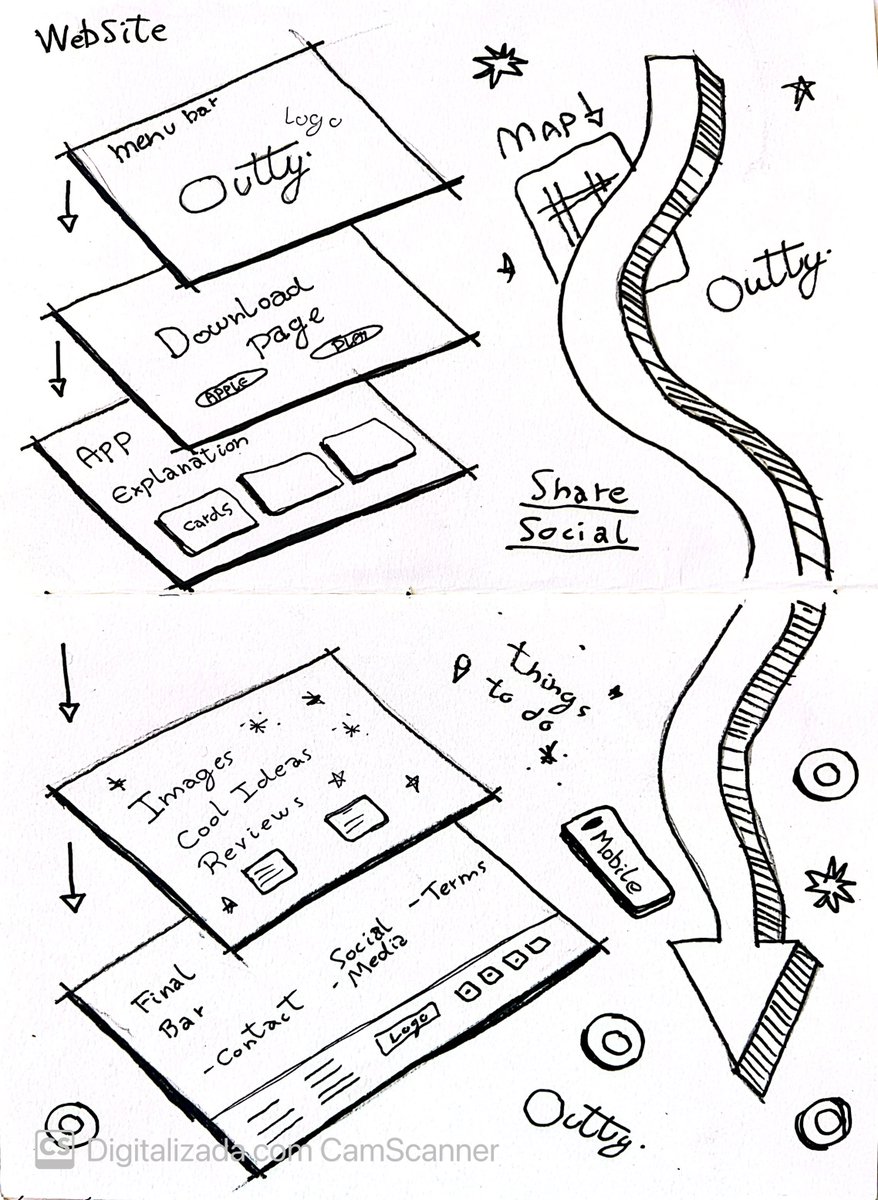 WebSite
menu bar
Logo
Outty.
MAP
Outty.
Download
Page
Apple
APP
Explanation
cards
Share
Social
things
to do
Images
Cool Ideas
Reviews
Mobile
Final
Bar
-Contact
- Social
- Media
- Terms
Logo
Outty.
CS Digitalizada com CamScanner